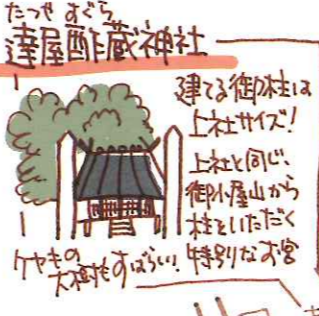 たつや すぐら
達屋酢蔵神社
建てる御柱は
上社サイズ!
上社と同じ、
御小屋山から
柱をいただく
特別なお宮
ケヤキの
大樹もすばらしい!